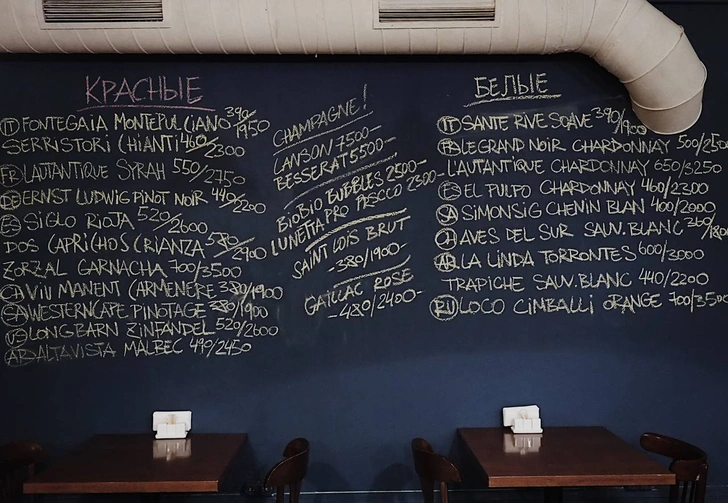 КРАСНЫЕ
IT FONTEGAIA MONTEPULCIANO 390/1950
SERRISTORI CHIANTI 460/2300
FR L'AUTANTIQUE SYRAH 550/2750
DE ERNST LUDWIG PINOT NOIR 440/2200
ES SIGLO RIOJA 520/2600
DOS CAPRICHOS CRIANZA 580/2900
ZORZAL GARNACHA 700/3500
CH VIU MANENT CARMENERE 380/1900
SA WESTERN CAPE PINOTAGE 380/1900
US LONGBARN ZINFANDEL 520/2600
AR ALTAVISTA MALBEC 490/2450
CHAMPAGNE!
LANSON 7500-
BESSERAT 5500-
BIOBIO BUBBLES 2500-
LUNETTA PROSECCO 2300-
SAINT LOIS BRUT
-380/1900-
GAILLAC ROSE
-480/2400-
БЕЛЫЕ
IT SANTE RIVE SOAVE 390/1900
FR LEGRAND NOIR CHARDONNAY 500/250
L'AUTANTIQUE CHARDONNAY 650/3250
ES EL PULPO CHARDONNAY 460/2300
SA SIMONSIG CHENIN BLAN 400/2000
CH AVES DEL SUR SAUV. BLANC 360/180
AR LA LINDA TORRONTES 600/3000
TRAPICHE SAUV. BLANC 440/2200
RU LOCO CIMBALLI ORANGE 700/350